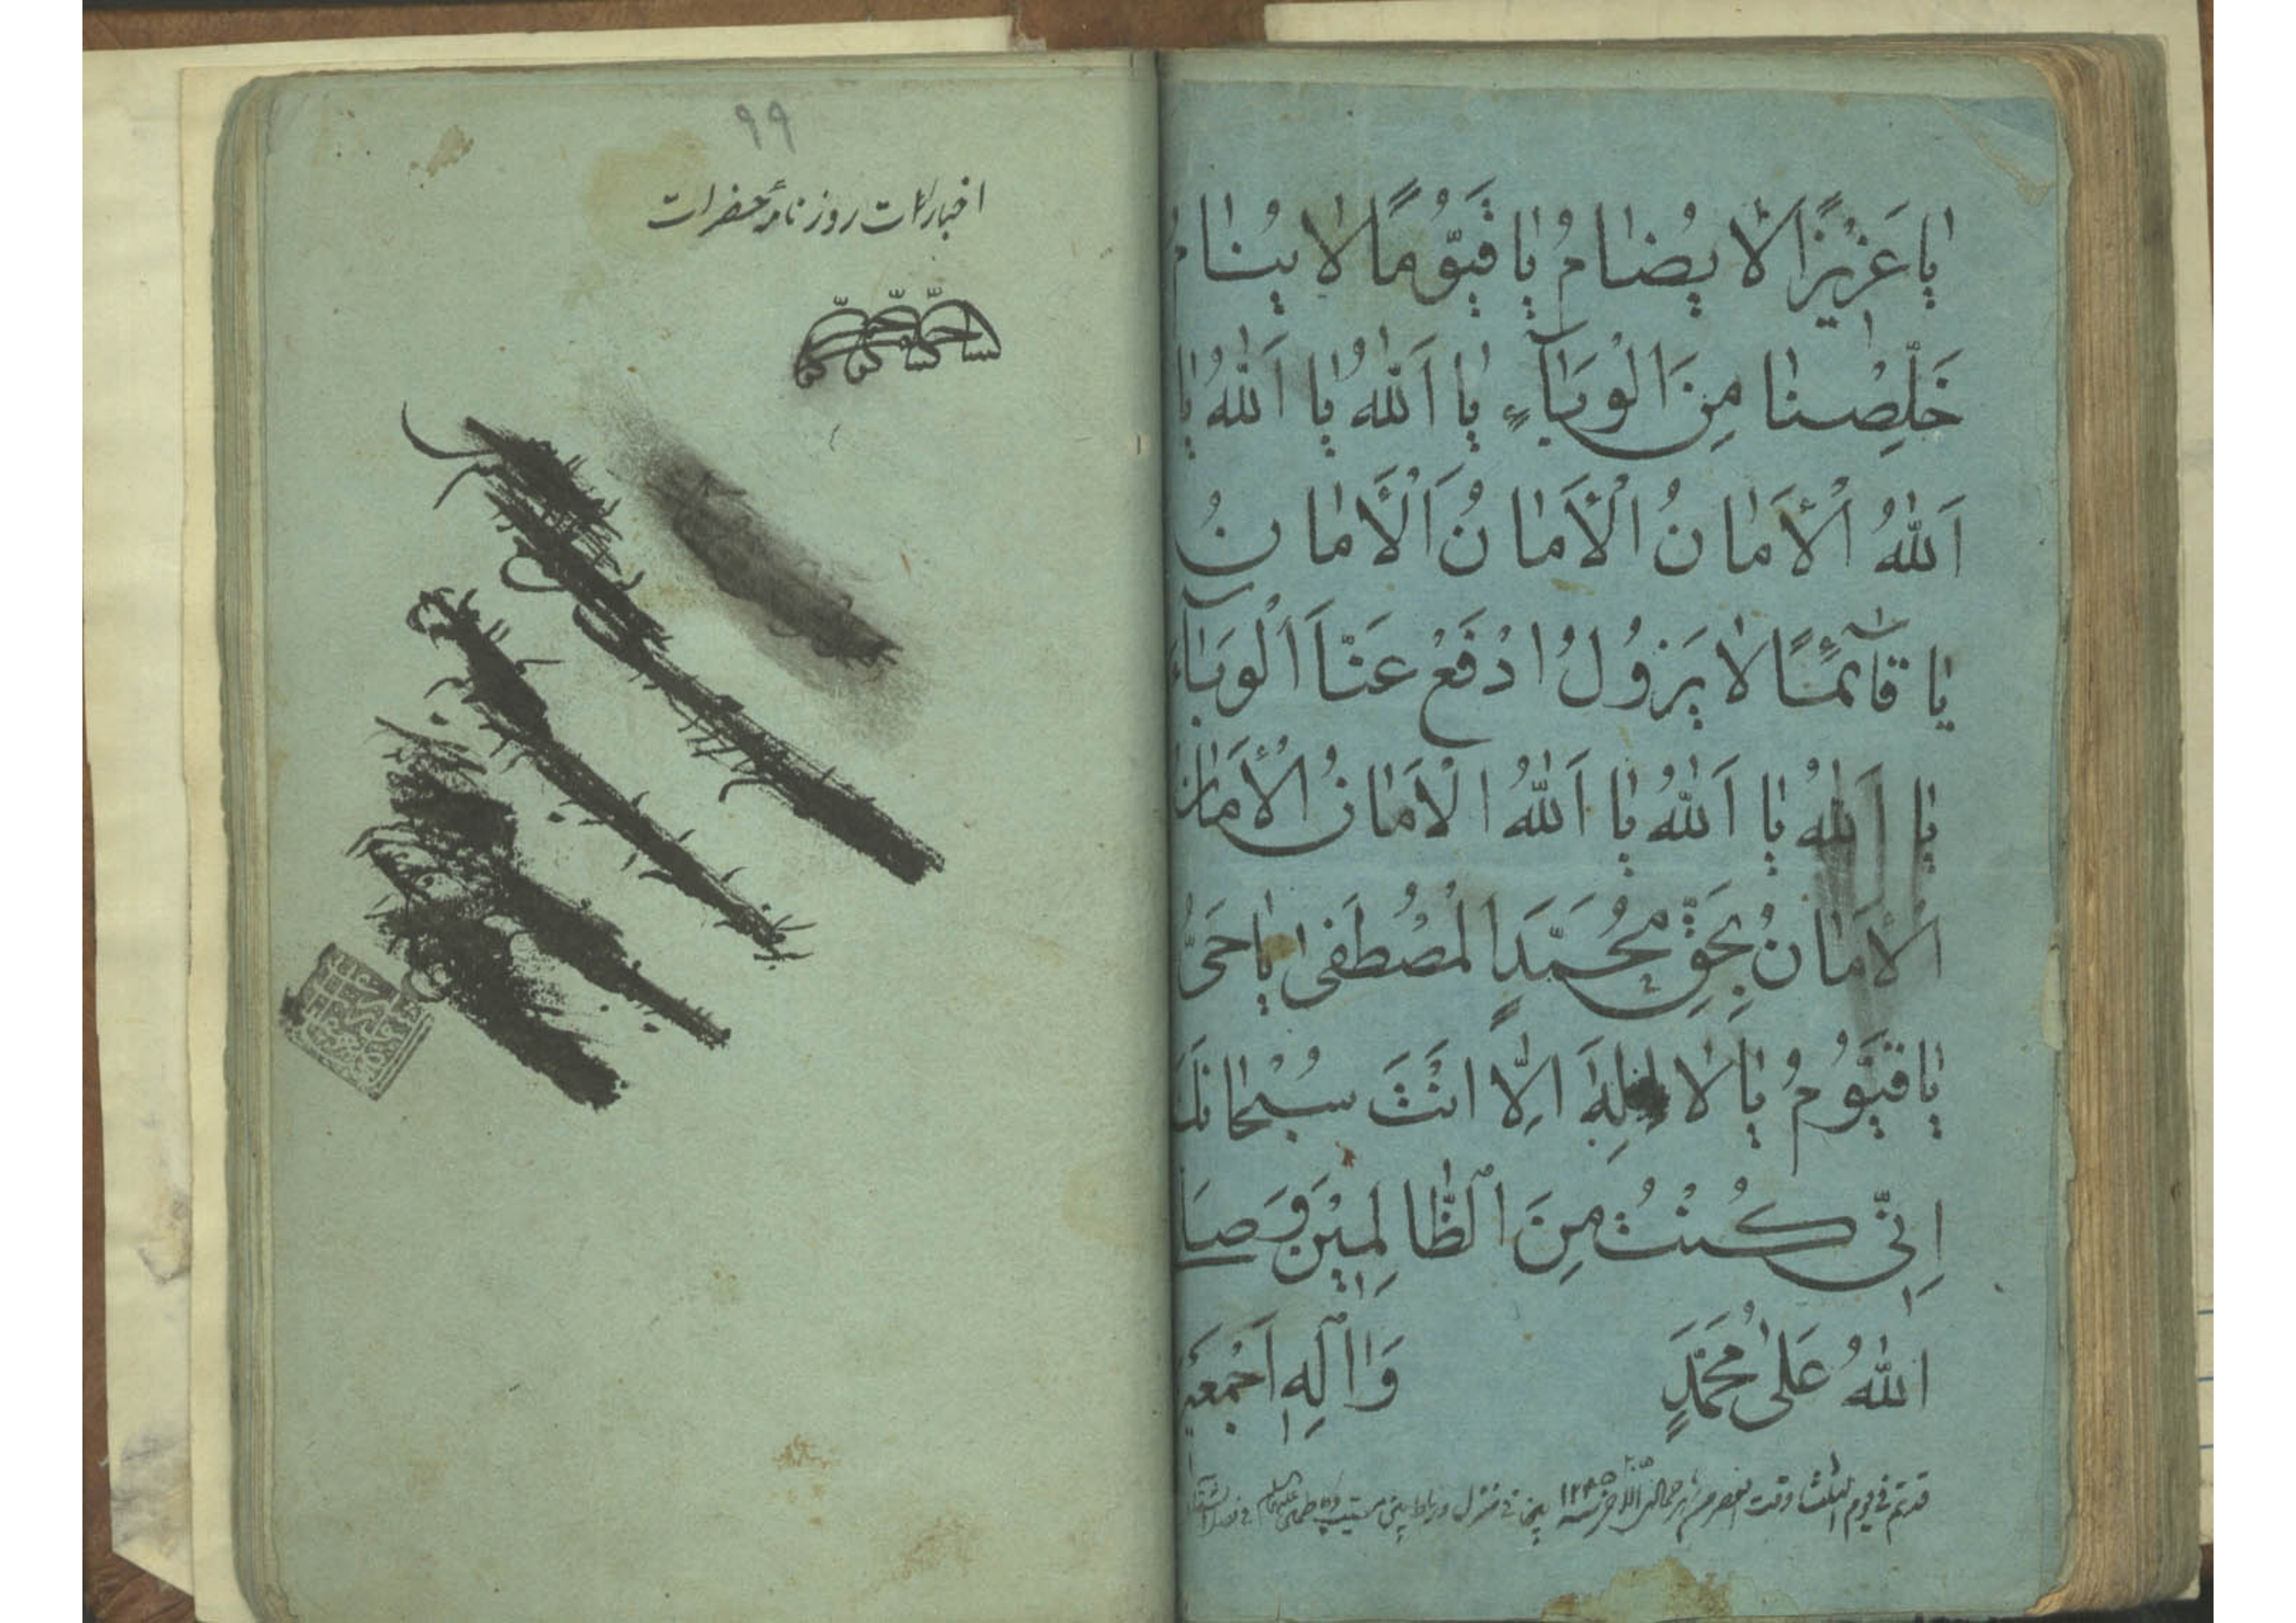 يَا عَزِيزًا لَا يُضَامُ يَا قَيُّومًا لَا يَنَامُ
خَلِّصْنَا مِنَ الْوَبَآءِ يَا اَللّٰهُ يَا اَللّٰهُ يَا
اَللّٰهُ اَلْأَمَانُ الْأَمَانُ اَلْأَمَانُ
يَا قَآئِمًا لَا يَزُولُ ادْفَعْ عَنَّا الْوَبَآءَ
يَا اَللّٰهُ يَا اَللّٰهُ يَا اَللّٰهُ الْأَمَانُ الْأَمَانُ
الْأَمَانُ بِحَقِّ مُحَمَّدٍ الْمُصْطَفٰى يَا حَيُّ
يَا قَيُّومُ يَا لَا إِلٰهَ اِلَّا انْتَ سُبْحَانَكَ
اِنِّي كُنْتُ مِنَ الظَّالِمِيْنَ وَصَلَّى
اللّٰهُ عَلٰى مُحَمَّدٍ وَاٰلِهِ اَجْمَعِينَ
قد تم في يوم الثلثا وقت العصر من شهر جمادى الاخر سنه
٩٩
اخبارات روزنامهٔ حضرات